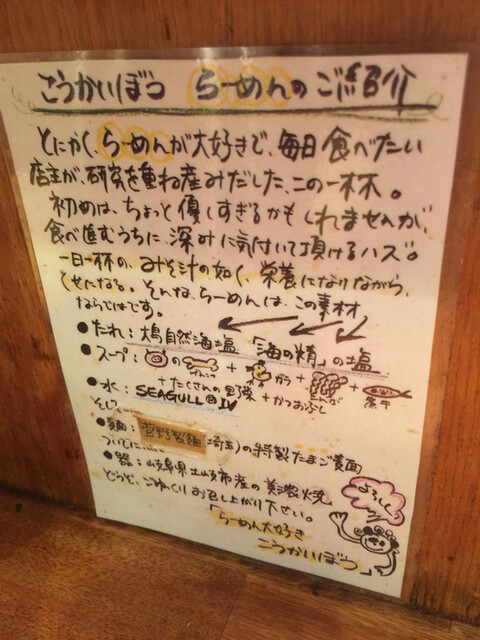 こうかいぼう らーめんのご紹介
とにかく、らーめんが大好きで、毎日食べたい
店主が、研究を重ね産みだした、この一杯。
初めは、ちょっと優しすぎるかもしれませんが、
食べ進むうちに、深みに気付いて頂けるハズ。
一日一杯の、みそ汁の如く、栄養になりながら、
くせになる。そんな、らーめんは、この素材
ならではです。
●たれ：自然海塩 「海の精」の塩
●スープ： の + ガラ + + 煮干
+ たくさんの野菜 + かつおぶし
●水：SEAGULL IV
そして
●麺：菅野製麺(埼玉)の特製たまご麺
ついでに……
●器：岐阜県土岐市産の美濃焼
どうぞ、ごゆっくりお召し上がり下さい。
「らーめん大好き
こうかいぼう」
よろしく